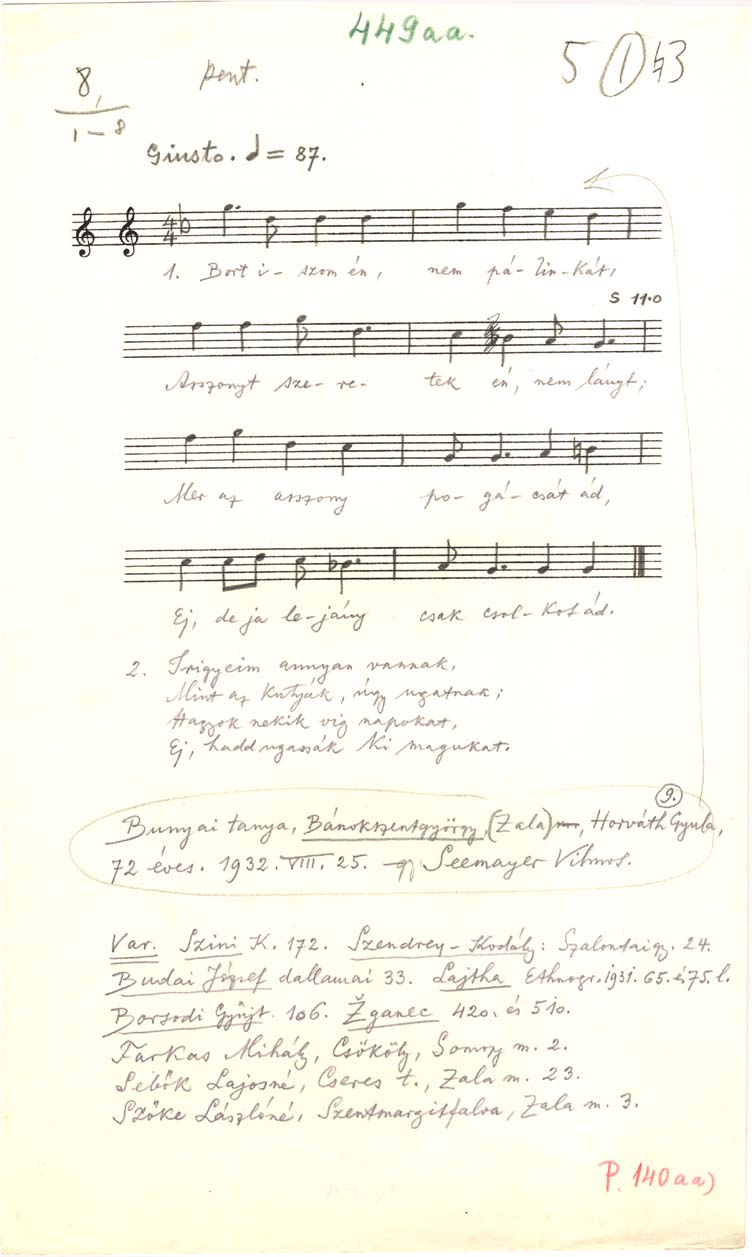 449aa.
8, pent. 5 (1) ♮3
1 – 8
Giusto. ♩ = 87.
1. Bort i- szom én, nem pá- lin-kát,
S 11.0
Asszonyt sze- re- tek én, nem lányt;
Mer az asszony po- gá- csát ád,
Ej, de ja le-jány csak csol- kot ád.
2. Irigyeim annyan vannak,
Mint az kutyák, úgy ugatnak;
Hagyok nekik víg napokat,
Ej, hadd ugassák ki magukat.
9.
Bunyai tanya, Bánokszentgyörgy, (Zala), Horváth Gyula,
72 éves. 1932. VIII. 25. Seemayer Vilmos.
Var. Szini K. 172. Szendrey – Kodály: Szalontai gy. 24.
Budai József dallamai 33. Lajtha Ethnogr. 1931. 65. és 75. l.
Borsodi Gyűjt. 106. Žganec 420. és 510.
Farkas Mihály, Csököly, Somogy m. 2.
Sebők Lajosné, Cseres t., Zala m. 23.
Szőke Lászlóné, Szentmargitfalva, Zala m. 3.
P. 140aa)